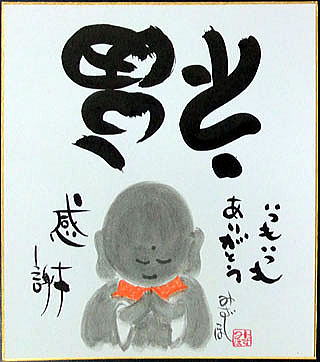 福
いつもいつも
ありがとう
みずほ
感謝